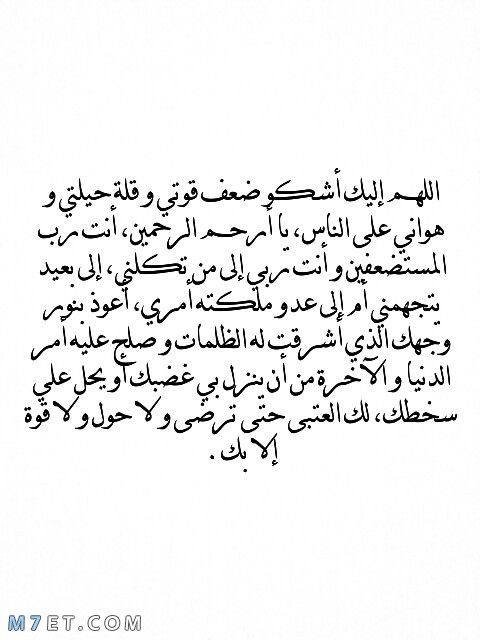 اللهم إليك أشكو ضعف قوتي و قلة حيلتي و
هواني على الناس، يا أرحم الرحمين، أنت رب
المستضعفين و أنت ربي إلى من تكلني، إلى بعيد
يتجهمني أم إلى عدو ملكته أمري، أعوذ بنور
وجهك الذي أشرقت له الظلمات و صلح عليه أمر
الدنيا و الآخرة من أن ينزل بي غضبك أو يحل علي
سخطك، لك العتبى حتى ترضى ولا حول ولا قوة
إلا بك .
M7ET.COM